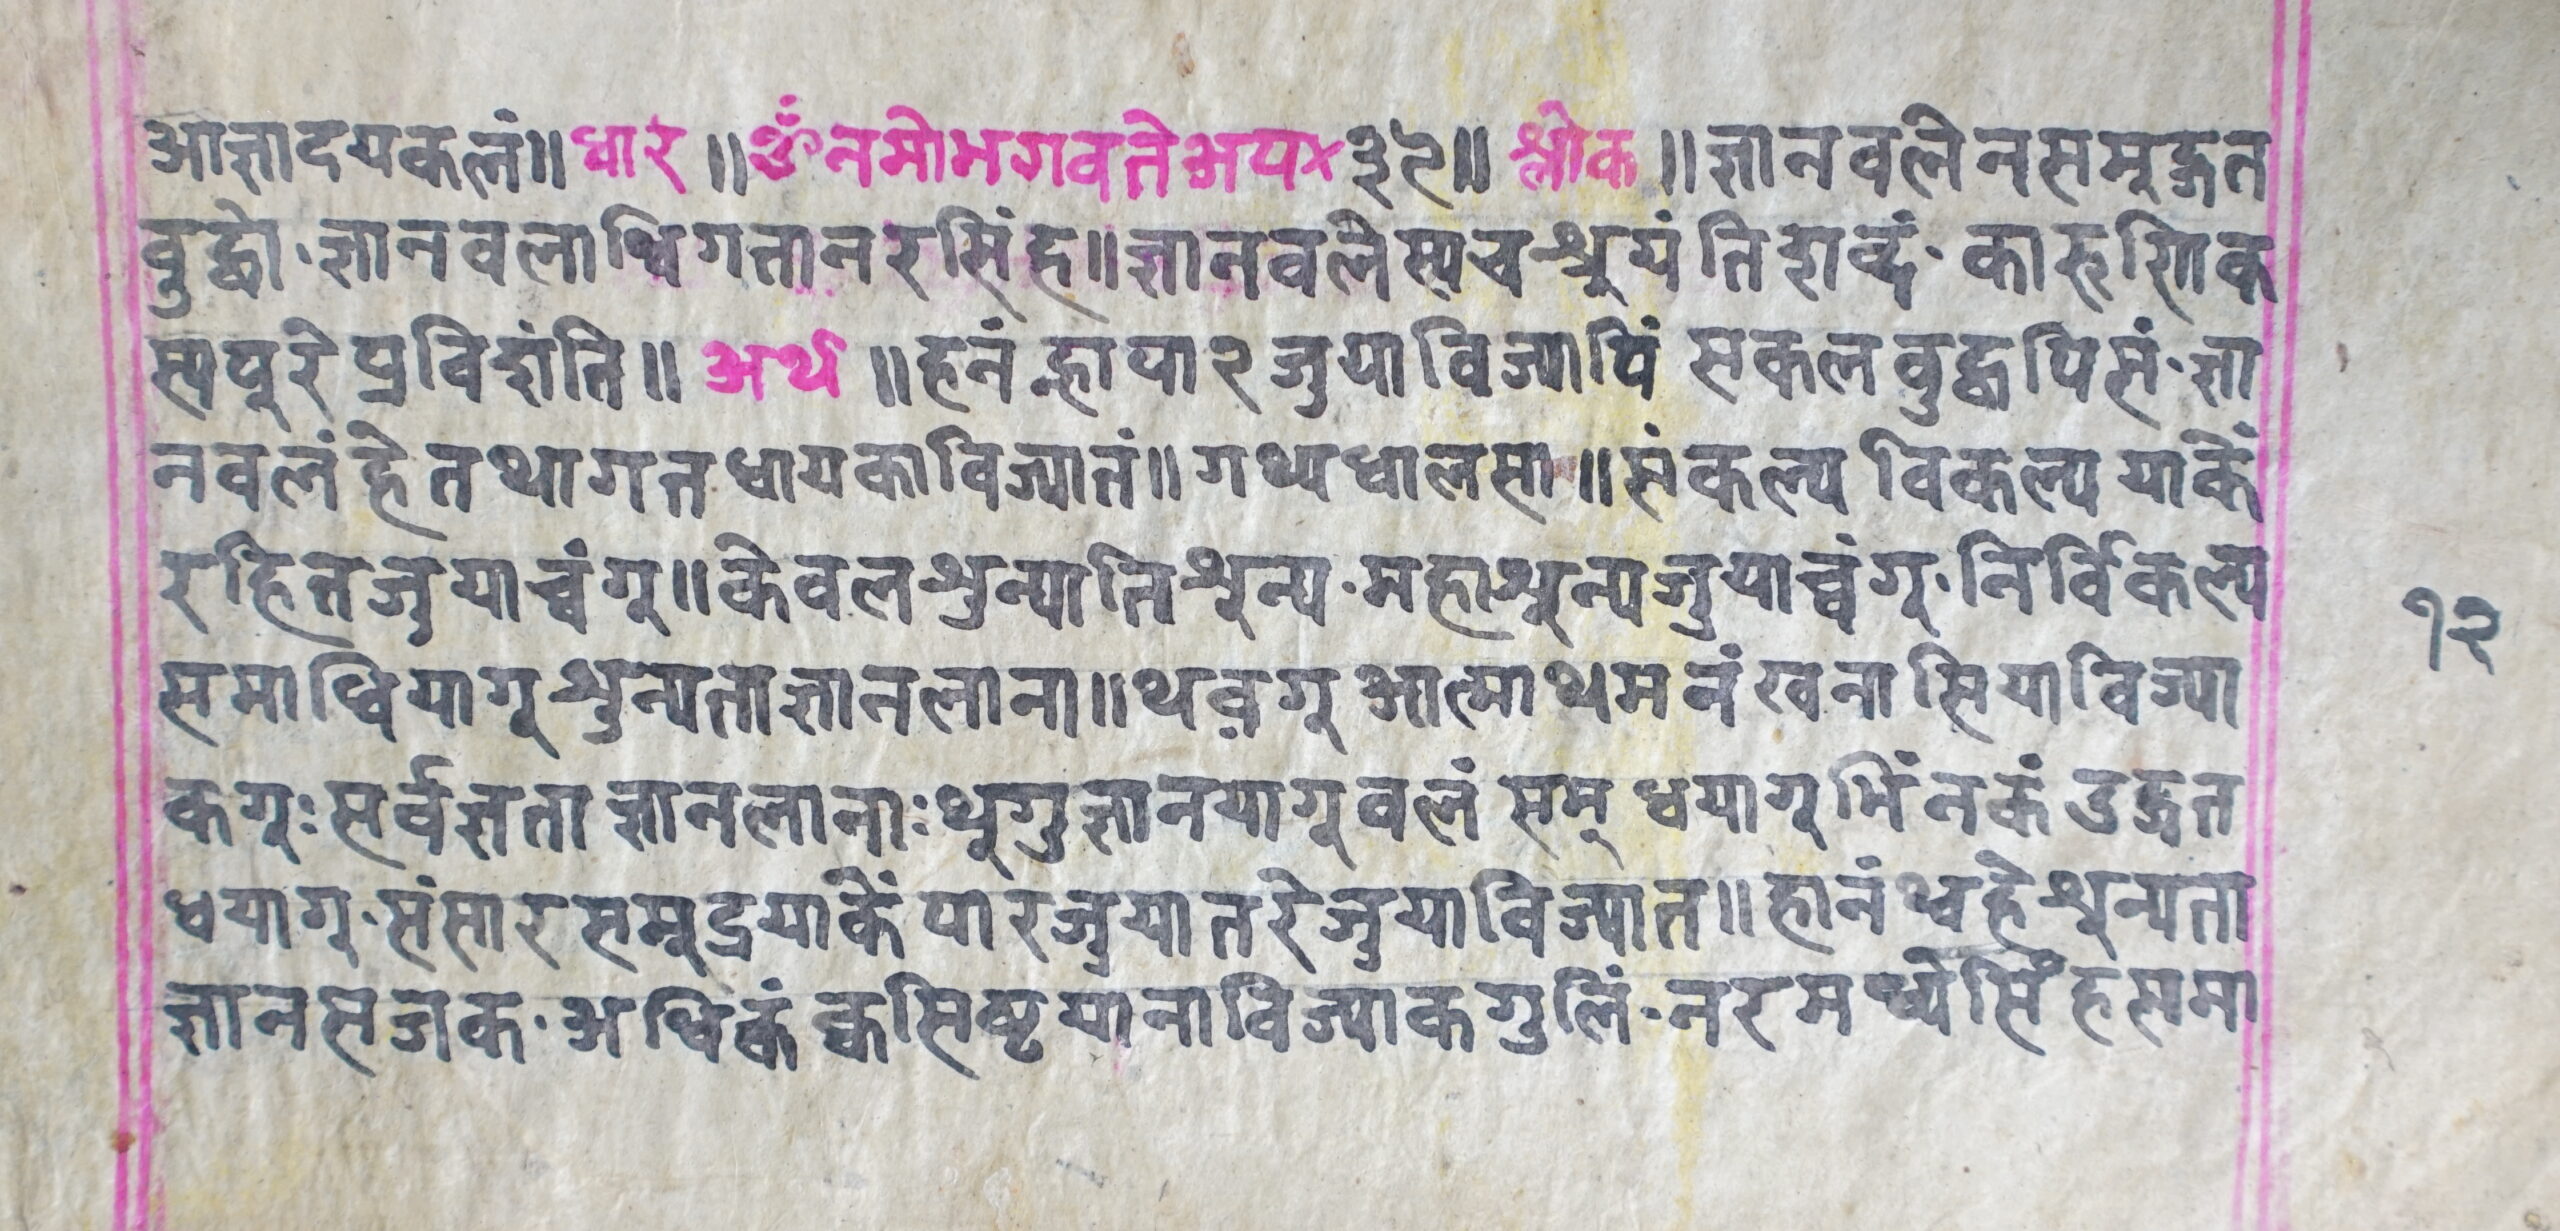 आज्ञादयकलं॥ धार ॥ ॐ नमोभगवते अप× ३२॥ श्लोक ॥ ज्ञानवलेनसमुद्गत
वुद्धो·ज्ञानवलाधिगतानरसिंह॥ज्ञानवलेस्यचश्रूयंतिशब्दं·कारूणिक
स्यपूरे प्रविशंति॥ अर्थ ॥हनं ह्नापा२जुयाविज्यापिं सकलवुद्धपिसं·ज्ञा
नवलंहे तथागत धायकाविज्यातं॥गथ्यधालसा॥संकल्प विकल्प याकें
रहितजुयाच्वंगू॥केवलश्रुन्यातिश्रून्य·महाश्रून्यजुयाच्वंगू·निर्विकल्प
समाधियागू श्रुन्यताज्ञानलाना॥थव़गू आत्माथमनं खनासियाविज्या
कगूःसर्वज्ञता ज्ञानलानाःथूगुज्ञानयागूवलं सम् धयागू भिंनकं उद्गत
धयागू·संसारसमूद्रयाकें पारजुयातरेजुयाविज्यात॥हानंथ्वहे श्रून्यता
ज्ञानसजक·अधिकं क्वसिष्टयानाविज्याकगुलिं·नरमध्येसिंहसमा
१२